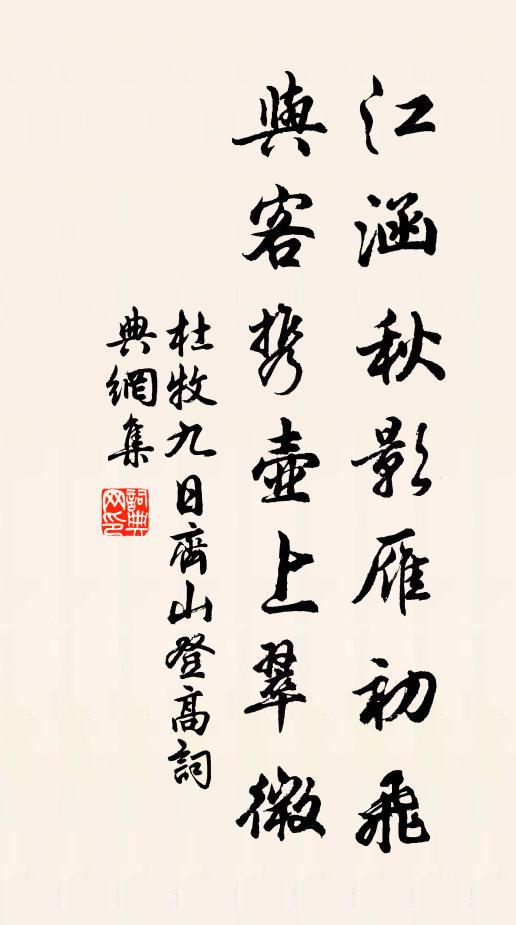 江涵秋影雁初飛
與客携壺上翠微
杜牧九日齊山登高詞
典網集
詞典
网印